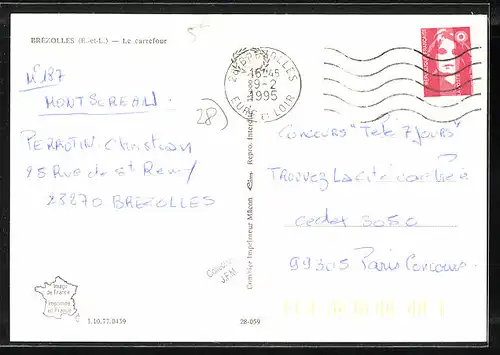 BREZOLLES (E.-et-L.) — Le carrefour
5
28 BREZOLLES
16H45
9-2
1995
EURE ET LOIR
N° 187
MONTSCREAN
28)
PERROTIN Christian
25 Rue de St Remy
28270 BREZOLLES
Concours "Télé 7 Jours"
TROUVEZ La Cité cachée
cedex 3050
99305 Paris Concours
Combier Imprimeur Mâcon
Cim
Repro. Interdite
Collection
J.F.M
image
de France
imprimée
en France
1.10.77.0459
28-059